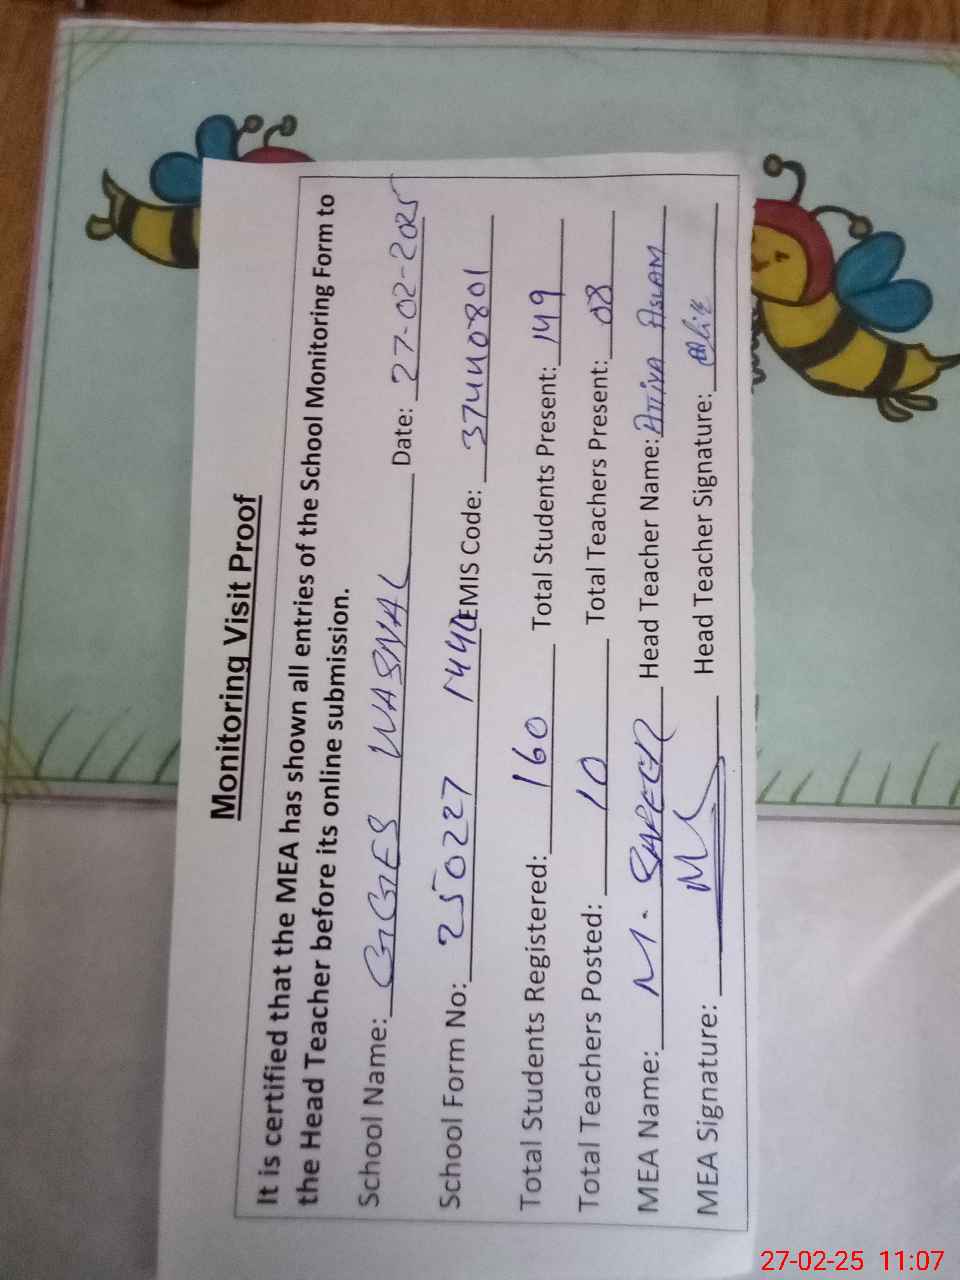 Monitoring Visit Proof
It is certified that the MEA has shown all entries of the School Monitoring Form to
the Head Teacher before its online submission.
School Name: GGES WASNAL Date: 27-02-2025
School Form No: 250227 1440 EMIS Code: 37440801
Total Students Registered: 160 Total Students Present: 149
Total Teachers Posted: 10 Total Teachers Present: 08
MEA Name: M. Head Teacher Name: ATIYA ASLAM
MEA Signature: Head Teacher Signature:
27-02-25 11:07